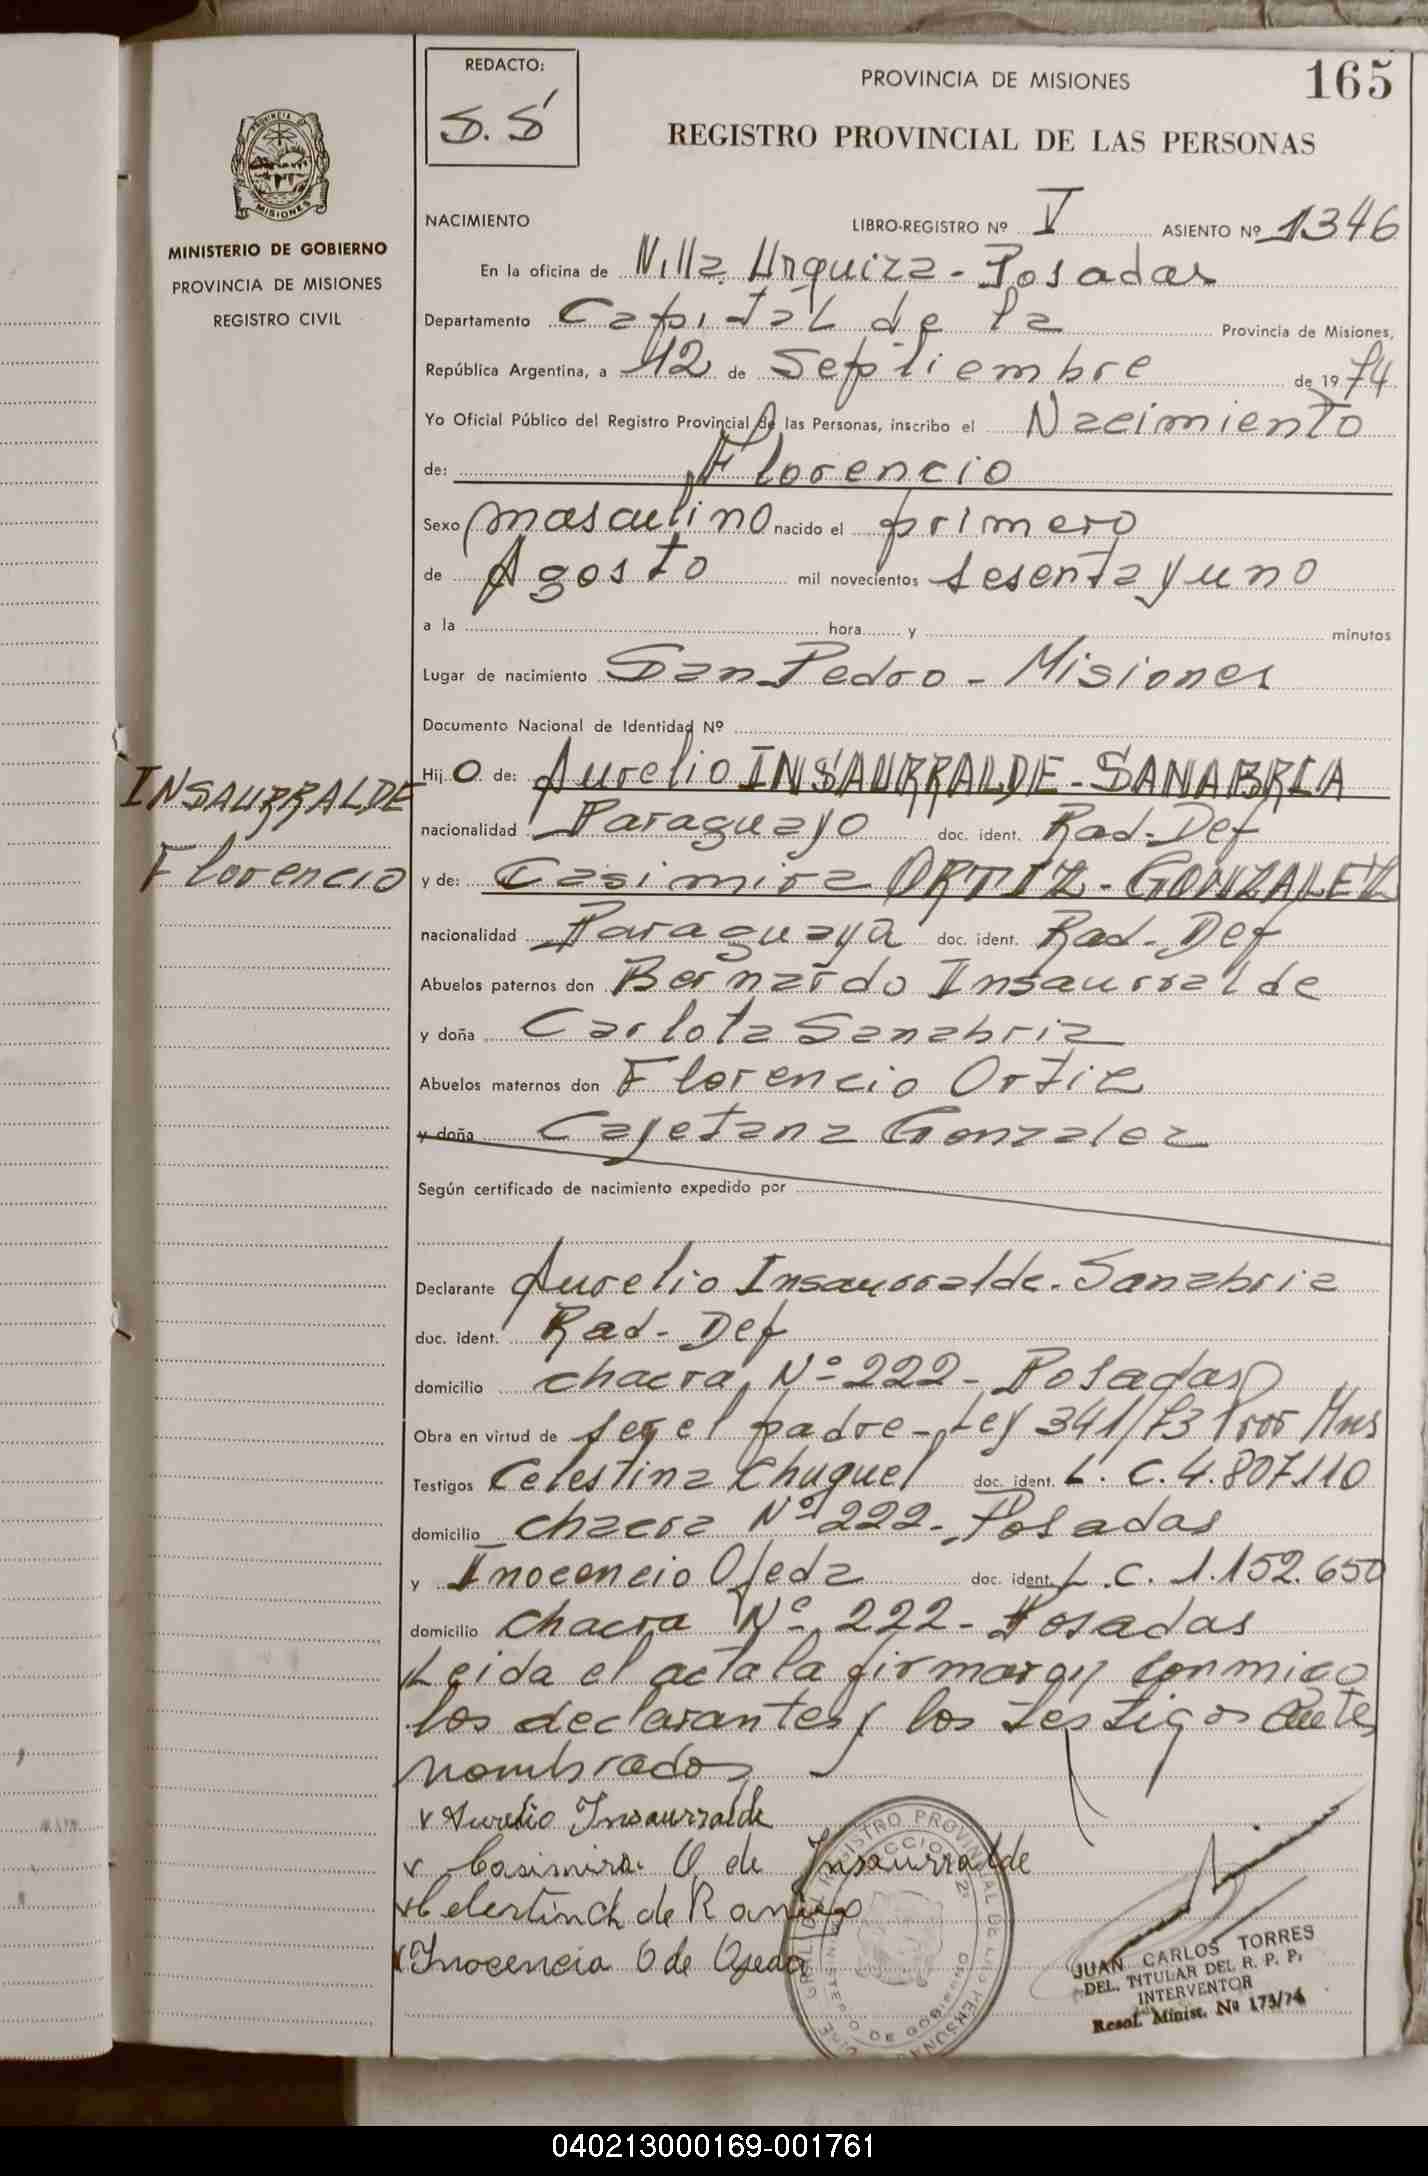 REDACTO:
S.S
PROVINCIA DE MISIONES
165
REGISTRO PROVINCIAL DE LAS PERSONAS
PROVINCIA DE
MISIONES
MINISTERIO DE GOBIERNO
PROVINCIA DE MISIONES
REGISTRO CIVIL
NACIMIENTO LIBRO-REGISTRO Nº V ASIENTO Nº 1346
En la oficina de Villa Urquiza - Posadas
Departamento Capital de la Provincia de Misiones,
República Argentina, a 12 de Septiembre de 1974
Yo Oficial Público del Registro Provincial de las Personas, inscribo el Nacimiento
de: Florencio
Sexo masculino nacido el primero
de Agosto mil novecientos sesenta y uno
a la hora y minutos
Lugar de nacimiento San Pedro - Misiones
Documento Nacional de Identidad Nº
INSAURRALDE
Florencio
Hijo de: Aurelio INSAURRALDE - SANABRIA
nacionalidad Paraguayo doc. ident. Rad - Def
y de: Casimira ORTIZ - GONZALEZ
nacionalidad Paraguaya doc. ident. Rad - Def
Abuelos paternos don Bernardo Insaurralde
y doña Carlota Sanabria
Abuelos maternos don Florencio Ortiz
y doña Cayetana Gonzalez
Según certificado de nacimiento expedido por
Declarante Aurelio Insaurralde - Sanabria
doc. ident. Rad - Def
domicilio chacra Nº 222 - Posadas
Obra en virtud de ser el padre - Ley 341/73 Mns
Testigos Celestina Chuquel doc. ident. L. C. 4.807.110
domicilio chacra Nº 222 - Posadas
y Inocencio Ojeda doc. ident. L.C. 1.152.650
domicilio chacra Nº 222 - Posadas
Leida el acta la firmaron conmigo
los declarantes y los testigos antes
nombrados
Aurelio Insaurralde
Casimira O de Insaurralde
Celestina Ch de Ramirez
Inocencia O de Ojeda
JUAN CARLOS TORRES
DEL. TITULAR DEL R. P. P.
INTERVENTOR
Resol. Minist. Nº 173/74
040213000169-001761